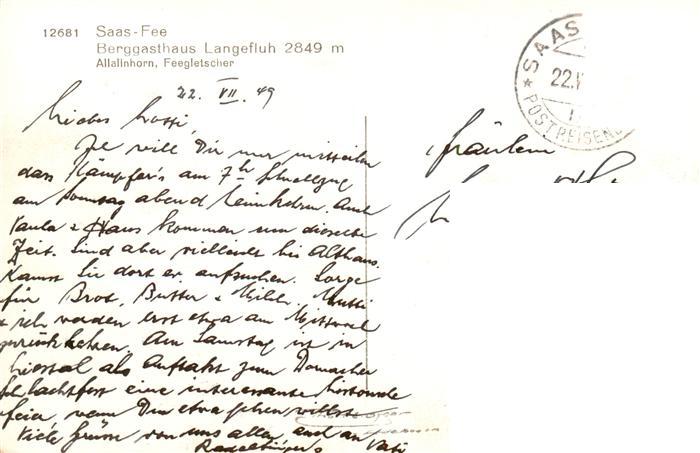 12681 Saas-Fee
Berggasthaus Langefluh 2849 m
Allalinhorn, Feegletscher
22. VII. 49
SAAS
22.V
POSTREISEN
Fräulein
Liebes
Ich will Dir nur mitteilen
dass Kämpfer's am 7h Schnellzug
am Sonntag abend heimkehren. Auch
Paula & Hans kommen um dieselbe
Zeit. Sind aber vielleicht bis Althaus.
Kannst Sie dort ev. aufsuchen. Sorge
für Brot, Butter & Milch. Mutti
& ich werden erst etwa am Mittwoch
zurückkehren. Am Samstag ist in
Liestal als Auftakt zum Dornacher
Schlachtfest eine interessante
feier wenn Du etwa gehen willst
Viele Grüsse von uns allen auch an Vati